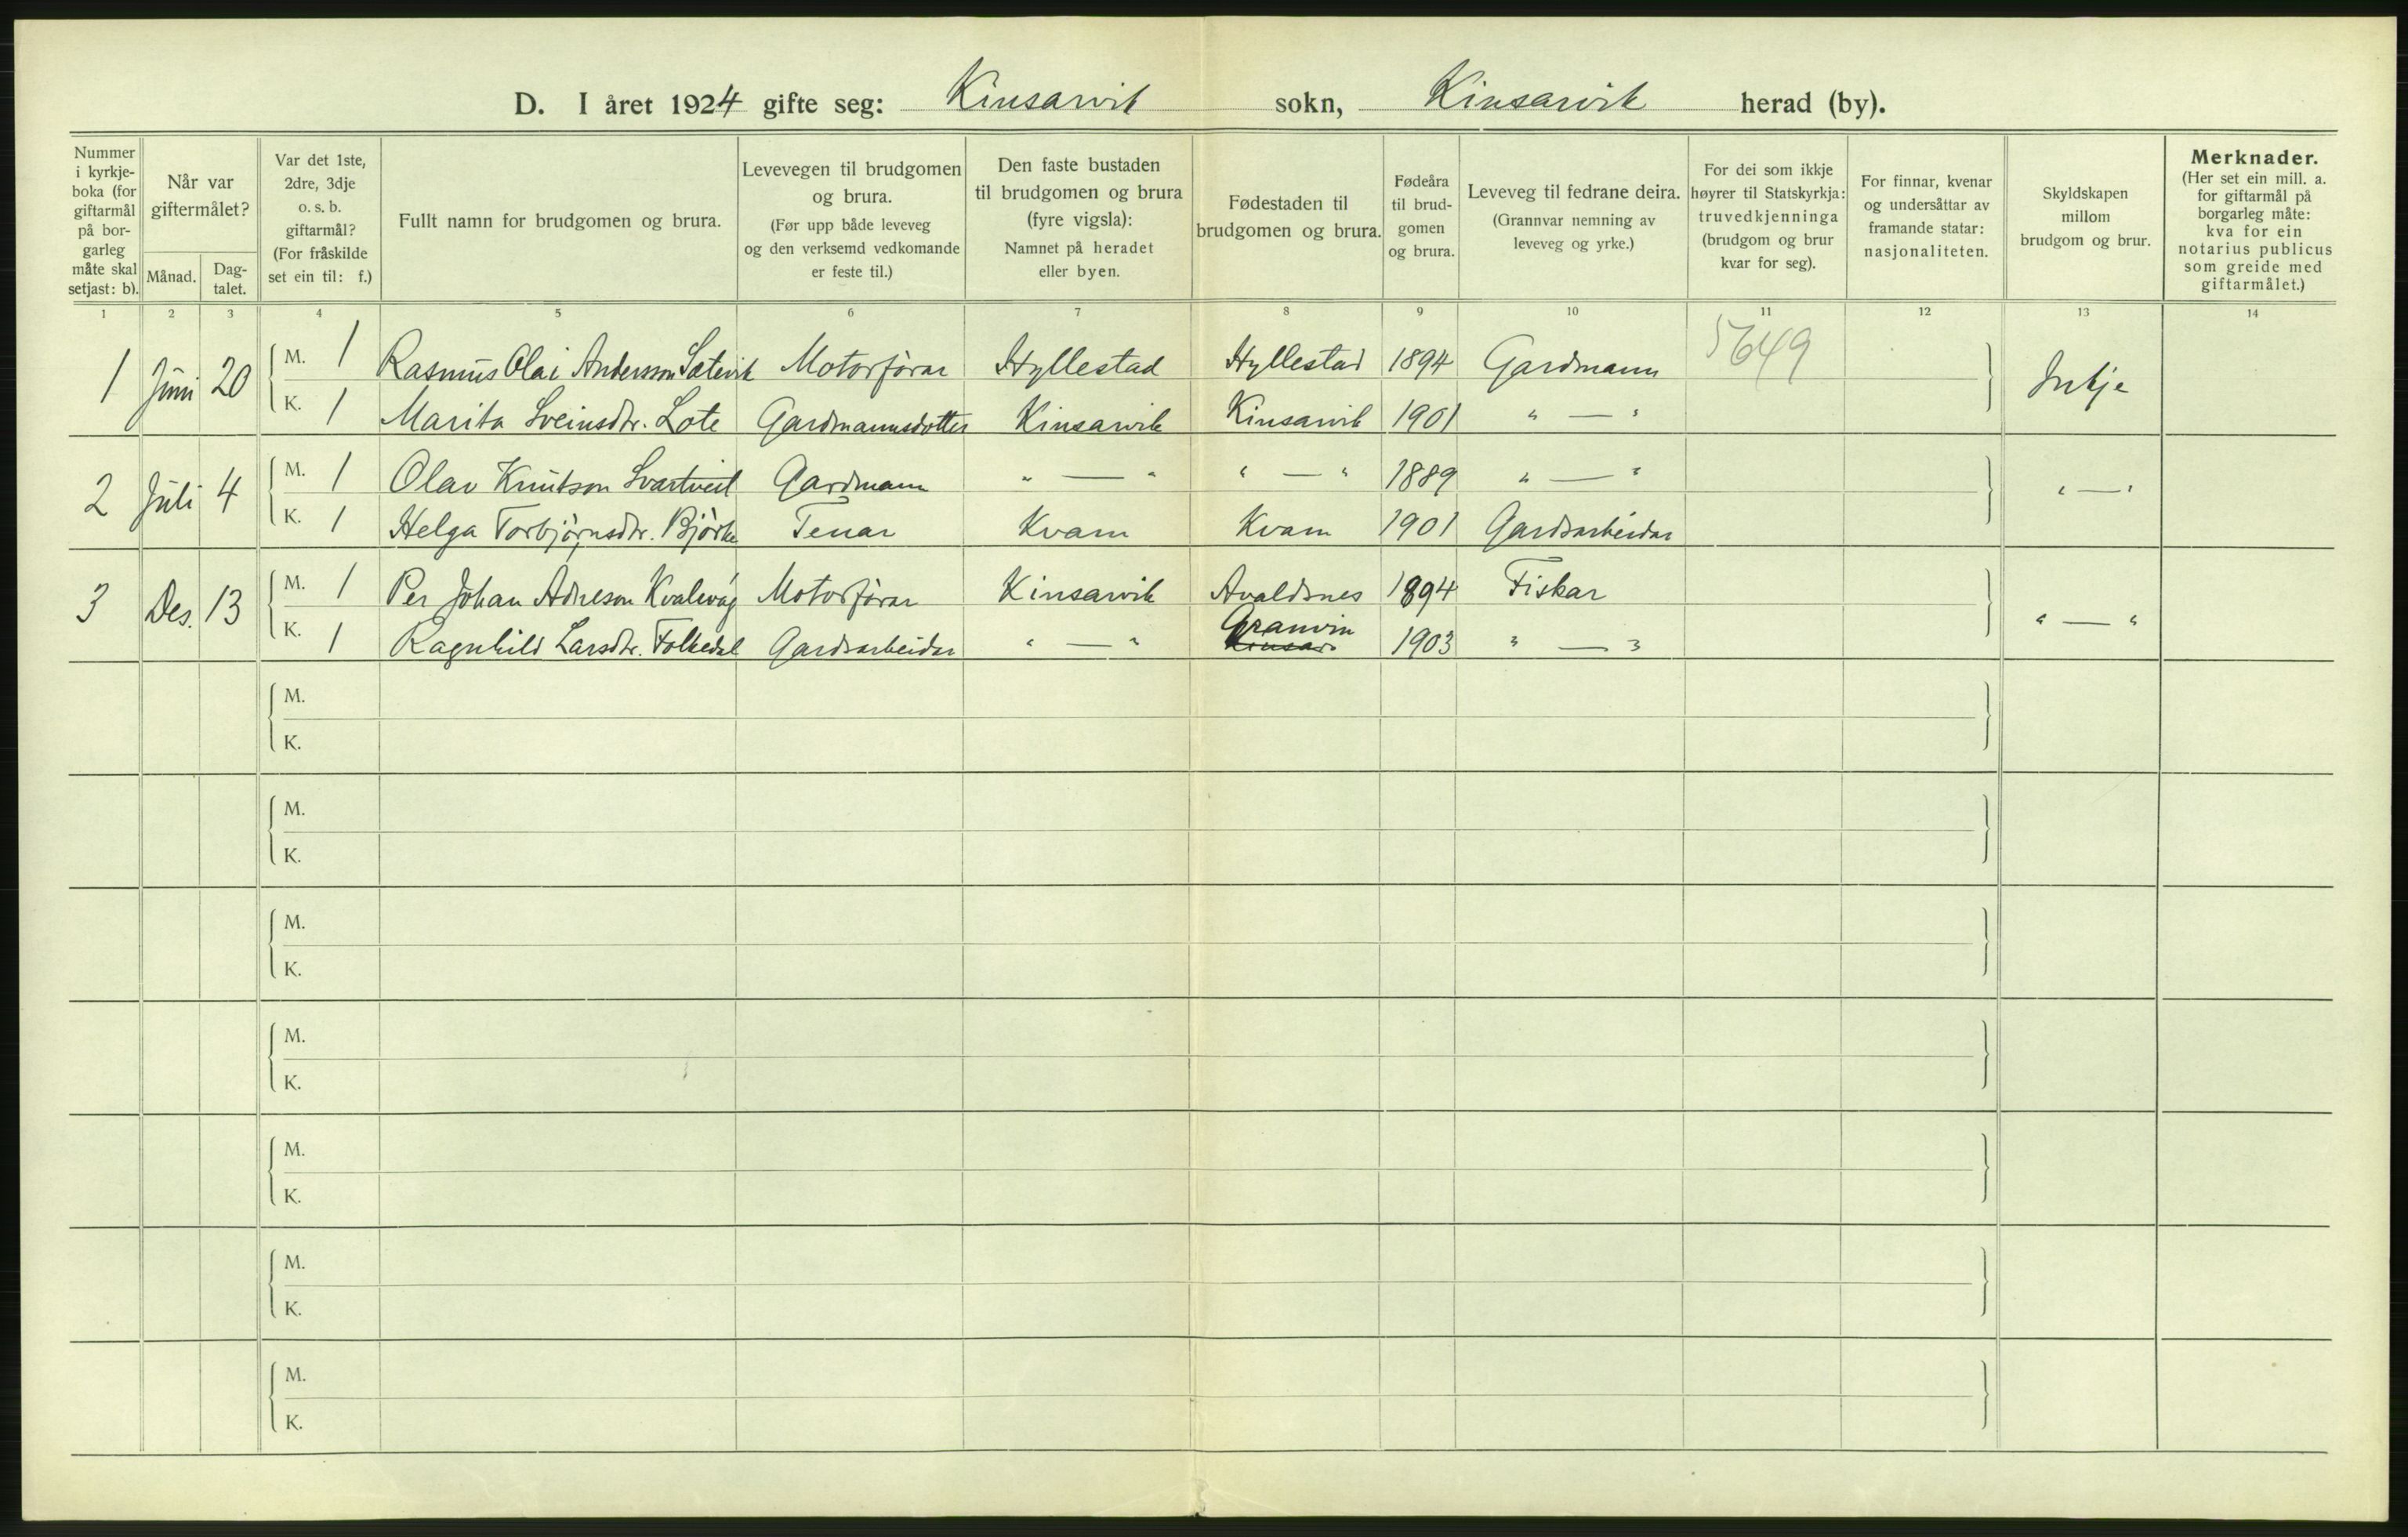 D. I året 1924 gifte seg: Kinsarvik sokn, Kinsarvik herad (by).
Nummer i kyrkje-boka (for giftarmål på bor-garleg måte skal setjast: b).
Når var giftermålet?
Månad.
Dag-talet.
Var det 1ste, 2dre, 3dje o. s. b. giftarmål? (For fråskilde set ein til: f.)
Fullt namn for brudgomen og brura.
Levevegen til brudgomen og brura. (Før upp både leveveg og den verksemd vedkomande er feste til.)
Den faste bustaden til brudgomen og brura (fyre vigsla): Namnet på heradet eller byen.
Fødestaden til brudgomen og brura.
Fødeåra til brud-gomen og brura.
Leveveg til fedrane deira. (Grannvar nemning av leveveg og yrke.)
For dei som ikkje høyrer til Statskyrkja: truvedkjenninga (brudgom og brur kvar for seg).
For finnar, kvenar og undersåttar av framande statar: nasjonaliteten.
Skyldskapen millom brudgom og brur.
Merknader. (Her set ein mill. a. for giftarmål på borgarleg måte: kva for ein notarius publicus som greide med giftarmålet.)
1 2 3 4 5 6 7 8 9 10 11 12 13 14
1 Juni 20 M. 1 Rasmus Olai Andersson Sætevik Motorførar Hyllestad Hyllestad 1894 Gardmann 5649 Inkje
K. 1 Marita Sveinsdtr. Lote Gardmannsdotter Kinsarvik Kinsarvik 1901 " — "
2 Juli 4 M. 1 Olav Knutson Svartveit Gardmann " — " " — " 1889 " — " " — "
K. 1 Helga Torbjørnsdtr. Bjørke Tenar Kvam Kvam 1901 Gardsarbeidar
3 Des. 13 M. 1 Per Johan Adneson Kvalevåg Motorførar Kinsarvik Avaldsnes 1894 Fiskar " — "
K. 1 Ragnhild Larsdtr. Folkedal Gardsarbeidar " — " Granvin Kinsar 1903 " — "
M.
K.
M.
K.
M.
K.
M.
K.
M.
K.
M.
K.
M.
K.